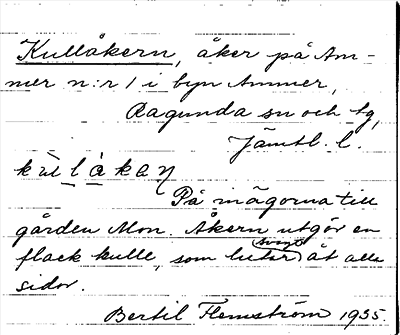 Kullåkern, åker på Am-
mer n:r 1 i byn Ammer,
Ragunda sn och tg,
Jämtl. l.
På mägorna till
gården Mon. Åkern utgör en
flack kulle, som svagt lutar åt alla
sidor.
Bertil Flemström 1935.